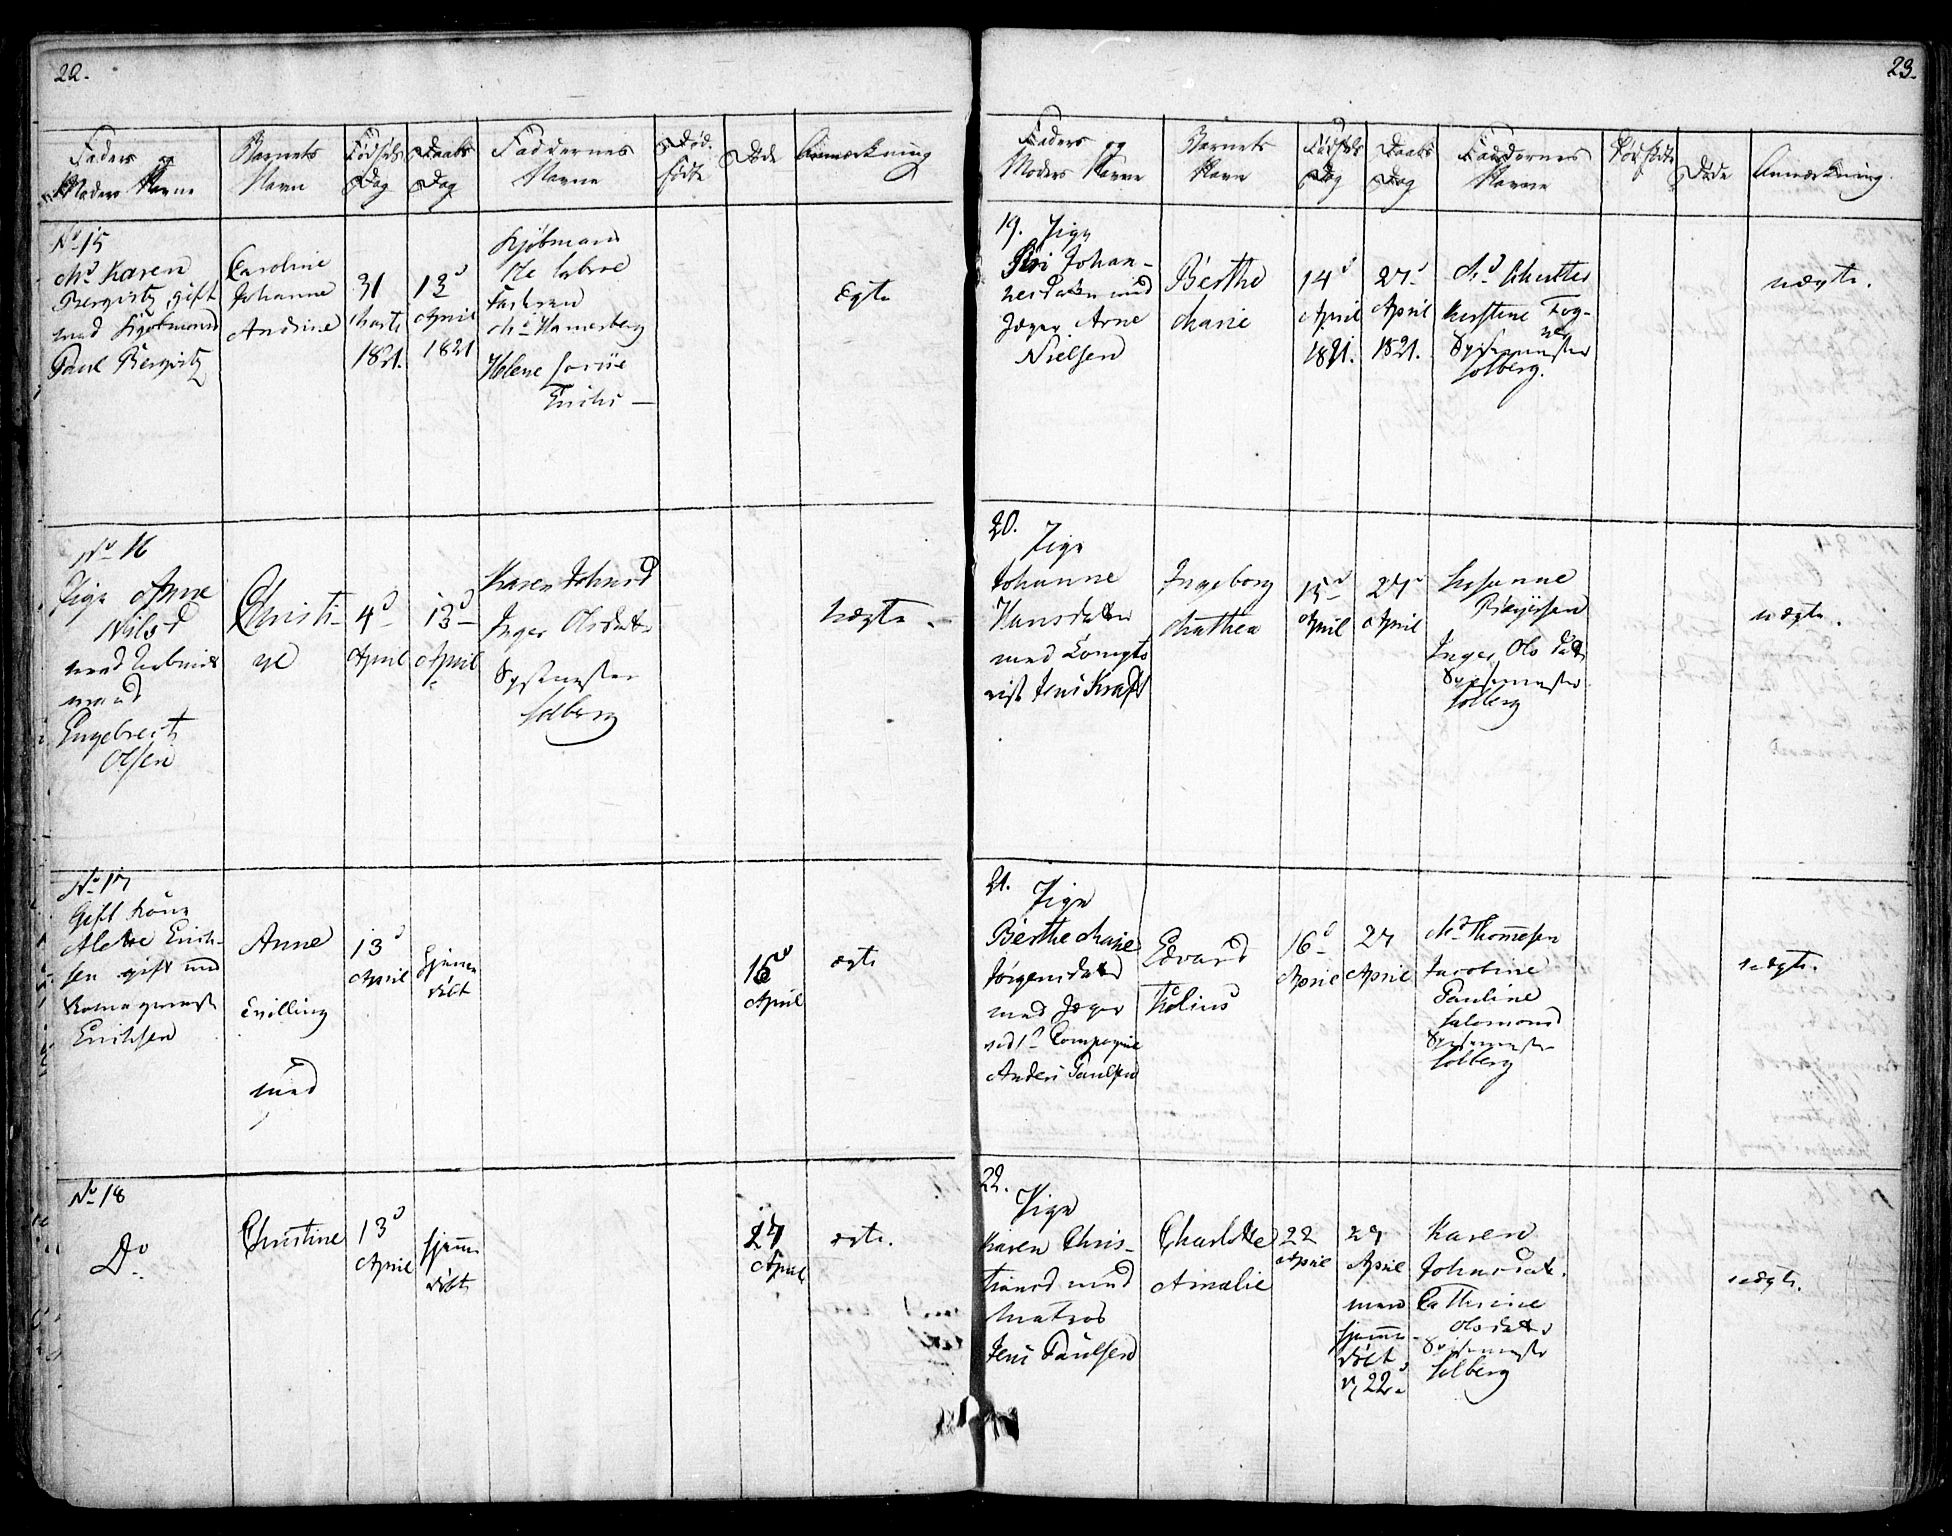 22.
Faders og
Moders Navne
Barnets
Navn
Fødsels
Dag
Daabs
Dag
Faddernes
Navne
Død-
fødte
Døde
Anmærkning
No 15
Md Karen
gift
med Kjøbmand
Caroline
Johanne
Andrine
31
Marts
1821.
13d
April
1821
Kjøbmand
Md Hameborg
Helene
ægte
No 16
Pige Anne
Nilsd
med
mand
Engebret
Olsen
Christi-
ne
4d
April
13d
April
Karen Johnsd
Inger Olsdatter
Spisemester
Solberg
uægte.
No 17
Gift Kone
Erich-
sen gift med
Erichsen
Anne
Tvilling
med
13d
April
hjemme
døbt
15d
April
ægte
No 18
Do
Christine
13d
April
hjemme
døbt
27
April
ægte.
23.
Faders og
Moders Navne
Barnets
Navn
Fødsels
Dag
Daabs
Dag
Faddernes
Navne
Død fødte
Døde
Anmærkning.
19. Pige
Johan-
nesdatter med
Jæger Arne
Nielsen
Berthe
Marie
14d
April
1821.
27d
April
1821.
Md
Kirstine
Spisemester
Solberg.
uægte.
20.
Pige
Johanne
Hansdatter
med
Jens Kraft
Ingeborg
Mathea
15d
April
27d
April
Susanne
Inger Olsdatter
Spisemester
Solberg
uægte.
21.
Pige
Berthe Marie
Jørgensdatter
med Jæger
ved 1ste Compagnie
Anders Paulsen
Edvard
16d
April
27
April
Md Thommesen
Jacobine
Pauline
Salomonsd
Spisemester
Solberg
uægte.
22.
Pige
Karen Chris-
tiansd med
Matros
Jens Paulsen
Charlotte
Amalie
22
April
27
April
men
hjemme-
døbt
d. 22d
Karen
Johnsdat.
Cathrine
Olsdatter
Spisemester
Solberg
uægte.